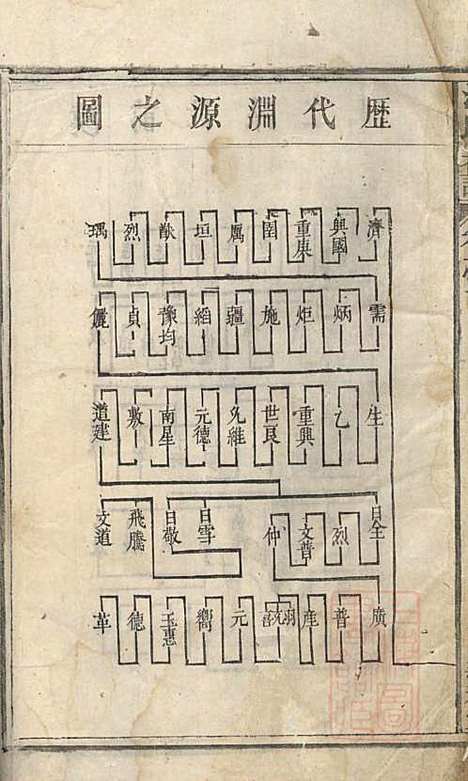 歷代淵源之圖
濟 興國 重庚 圉 厲 垣 猷 烈 瑀
需 炳 炬 施 疆 縚 豫均 貞 儷
生 乙 重興 世良 允維 元德 南星 敷 道建
日全 烈 文普 仲 日雪 日敬 飛騰 文道
廣 普 産 元 嚮 玉惠 德 革